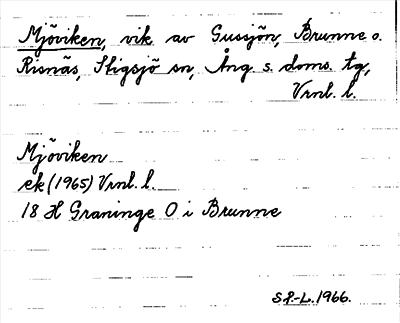 Mjöviken, vik av Gussjön, Brunne o.
Risnäs, Stigsjö sn, Ång. s. doms. tg,
Vrnl. l.
Mjöviken
ek (1965) Vrnl. l.
18 H Graninge O i Brunne
S.P.-L. 1966.